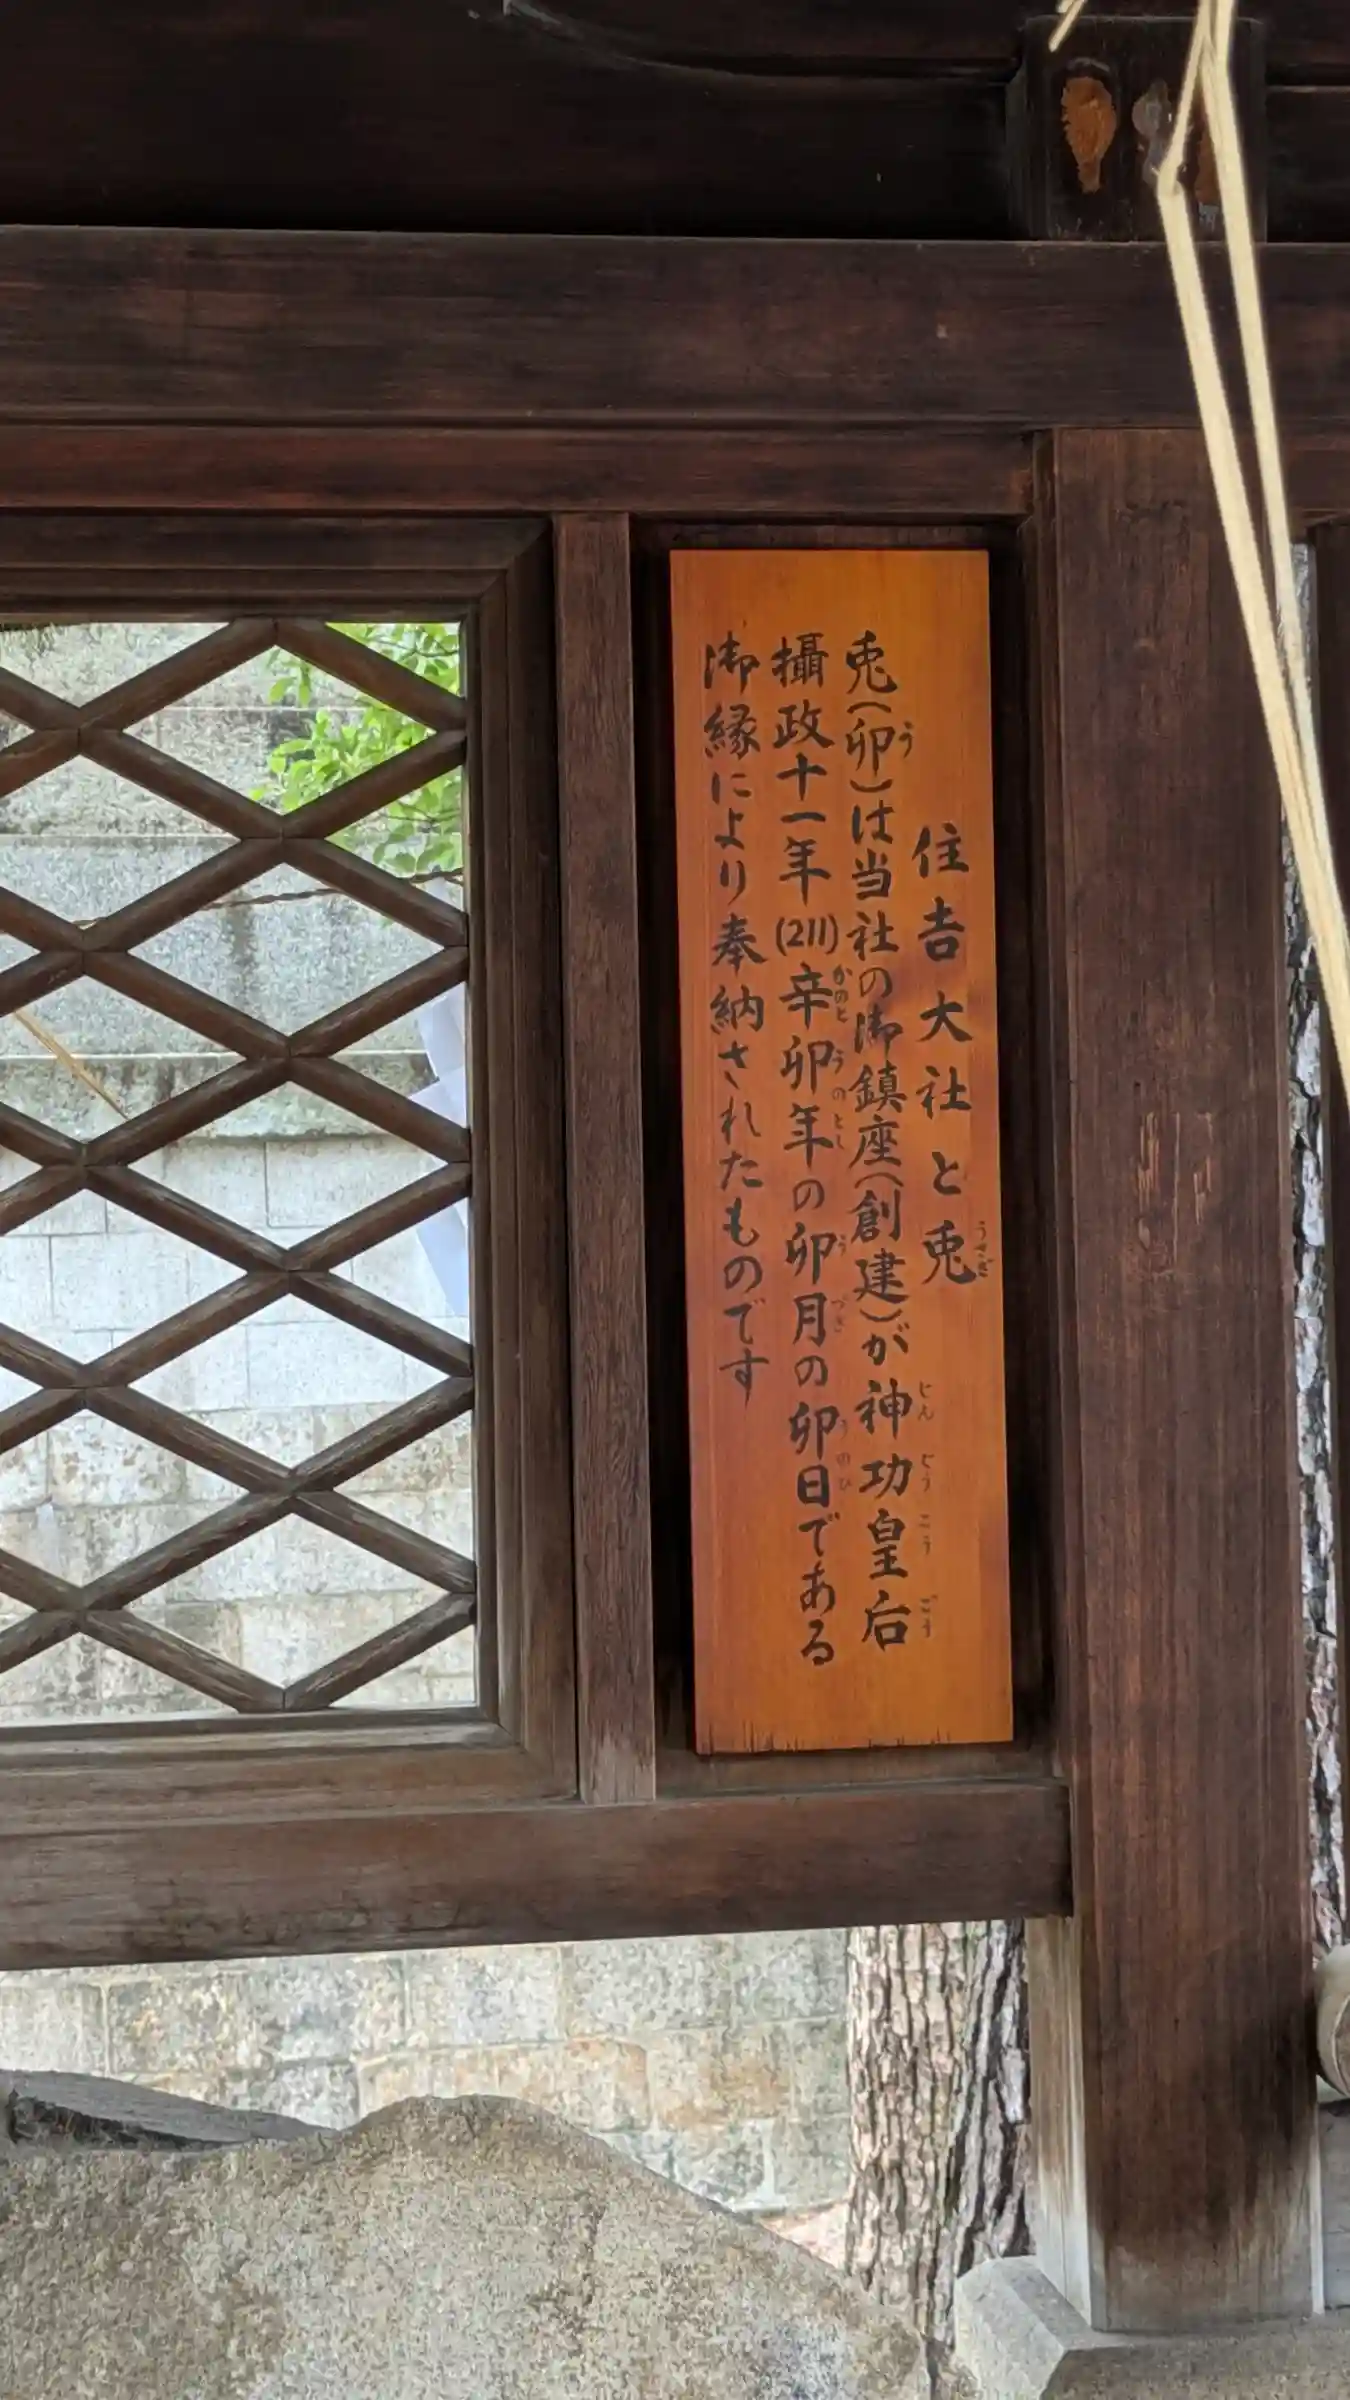 住吉大社と兎
兎(卯)は当社の御鎮座(創建)が神功皇后
攝政十一年(211)辛卯年の卯月の卯日である
御縁により奉納されたものです